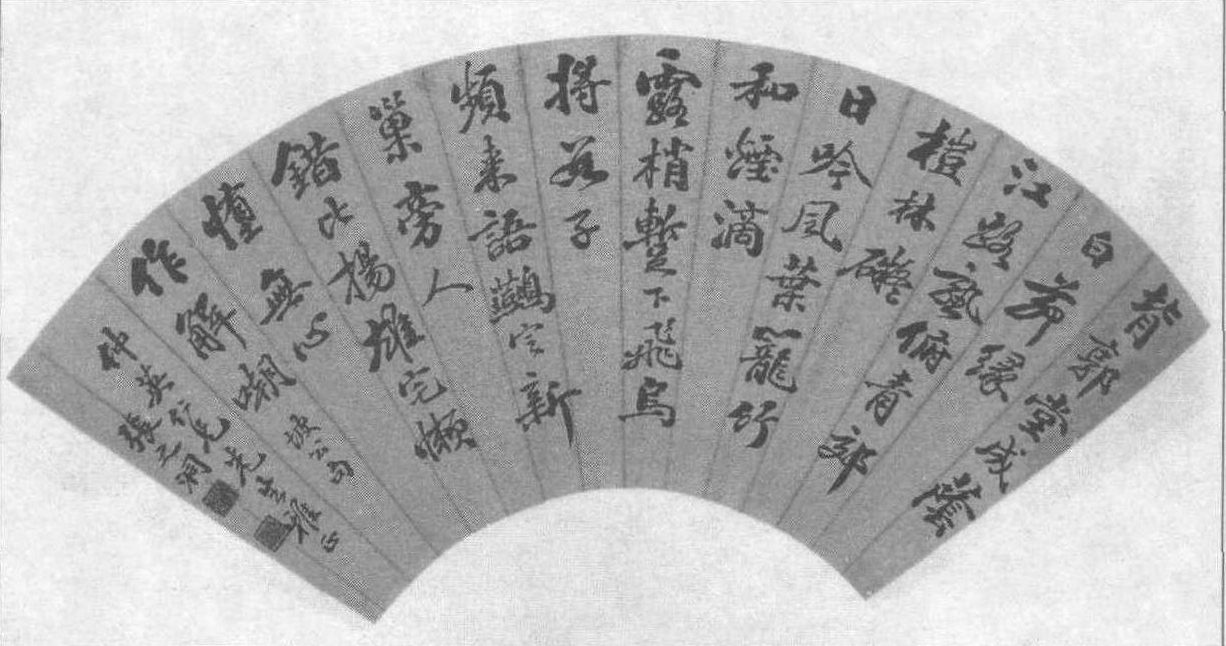 背郭堂成蔭
白茅緣
江路熟俯青郊
榿林礙
日吟風葉籠竹
和煙滴
露梢蹔下飛烏
將数子
頻来語鷰定新
巢旁人
錯比揚雄宅懶
惰無心
作解嘲 坡公句
仲英仁兄先生雅正
張之洞